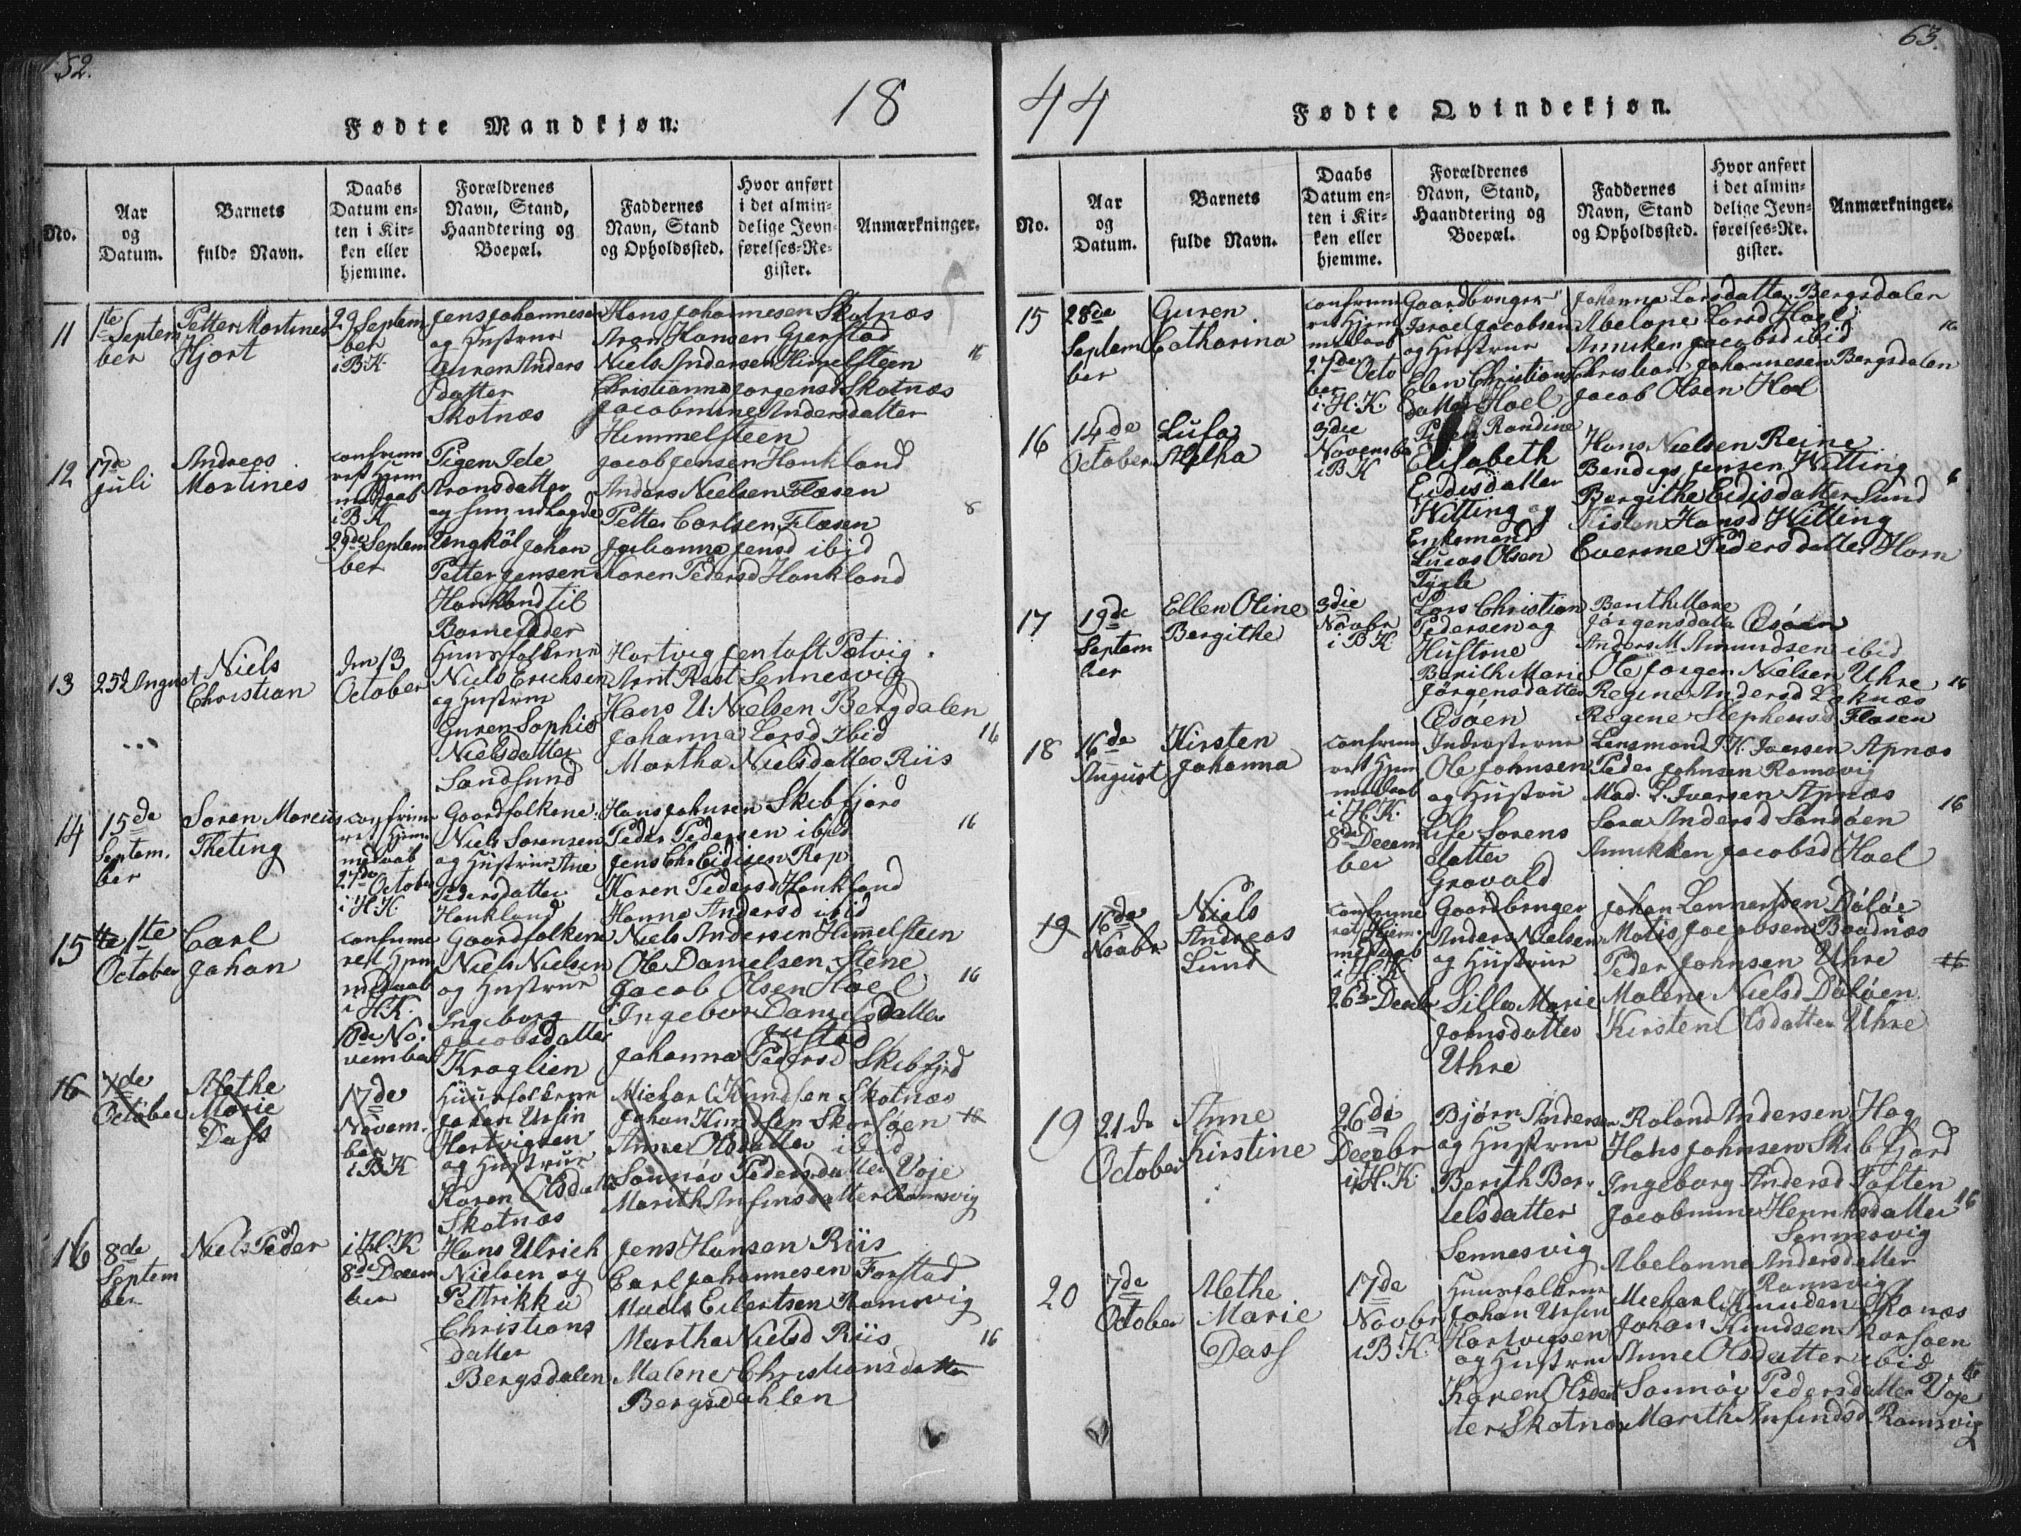 52.
18
Fødte Mandkjøn.
No.
Aar
og
Datum.
Barnets
fulde Navn.
Daabs
Datum en-
ten i Kir-
ken eller
hjemme.
Forældrenes
Navn, Stand,
Haandtering og
Boepæl.
Faddernes
Navn, Stand
og Opholdssted.
Hvor anført
i det almin-
delige Jevn-
førelses-Re-
gister.
Anmærkninger.
11
1te
Septem
ber
Petter Mortines
Hjort
29 Septem
ber
i BK
Jens Johannesen
og Hustrue
Guren Anders
datter
Skotnæs
Hans Johannesen Skotnæs
Aron Hansen Gjerstad
Niels Andersen Himelsteen
Christianna Jorgensd Skotnæs
Jacobmine Andersdatter
Himmelsteen
16
12
17de
juli
Andreas
Mortines
confirme
ret Hjem
medaab
i BK
29de Septem
ber
Pigen Ide
Aronsdatter
og hun udlagde
Ungkôl Johan
Petter Jensen
Hankland til
Barnefader
Jacob Jensen Hankland
Anders Nielsen Flæsen
Petter Carlsen Flæsen
Johanna Jensd ibid
Karen Pedersd Hankland
8
13
25de August
Niels
Christian
den 13
October
Huusfolkene
Niels Erichsen
og Hustrue
Guren Sophie
Nielsdatter
Sandsund
Hartvig Jentoft Petvig
Arnt Rast Sennesvig
Hans U. Nielsen Bergdalen
Johanna Larsd Ibid
Martha Nielsdatter Riis
16
14
15de
Septem.
ber
Søren Marcus
Theting
confirme
ret Hjem
medaab
27de October
i H.K
Gaardfolkene
Niels Sørensen
og Hustrue Ane
Pedersdatter
Hankland
Hans Johnsen Skibfjord
Peder Pedersen ibid
Jens Chr Eidisen Rep
Karen Pedersd Hankland
Hanna Andersd ibid
16
15
1te
October
Carl
Johan
confirme
ret Hjem
medaab
i HK.
10de No.
vember
Gaardfolkene
Niels Nielsen
og Hustrue
Ingeborg
Jacobsdatter
Kraglien
Niels Andersen Himelsteen
Ole Danielsen Stene
Jacob Olsen Hoel
Ingebor Danielsdatter
Justad
Johanna Pedersd Skibfjrd
16
16
7de
October
Alethe
Marie
Dass
17de
Novem.
ber
i BK
Huusfolkene
Johan Ursin
Hartvigsen
og Hustrue
Karen Olsdatter
Skotnæs
Michael Knudsen Skotnæs
Johan Knudsen Skarsøen
Anne Olsdatter ibid
Sonnøv Pedersdatter Voje
Marith Anfinsdatter Ramsvig
16
16
8de
Septem
ber
Niels Peder
i H.K
8de Decem
ber
Hans Ulrich
Nielsen og
Pettrikka
Christians
datter
Bergsdalen
Jens Hansen Riis
Carl Johannesen Farstad
Maels Eilertsen Ramsvig
Martha Nielsd Riis
Malene Christiansdatter
Bergsdahlen
16
63.
44
Fødte Qvindekjøn.
No.
Aar
og
Datum.
Barnets
fulde Navn.
Daabs
Datum en-
ten i Kir-
ken eller
hjemme.
Forældrenes
Navn, Stand,
Haandtering og
Boepæl.
Faddernes
Navn, Stand
og Opholdssted.
Hvor anført
i det almin-
delige Jevn-
førelses-Re-
gister.
Anmærkninger.
15
28de
Septem
ber
Guren
Catharina
confirme
ret Hjem
medaab
27de Octo
ber
i H.K.
Gaardbruger
Israel Jacobsen
og Hustrue
Elen Christians
datter Hoel
Johanna Larsdatter Bergsdalen
Abelone Larsd Hoel
Anniken Jacobsd ibid
Christian Johannesen Bergsdalen
Jacob Olsen Hoel
16
16
14de
October
Lusa
Aletha
3die
November
i BK
Randine
Elisabeth
Eidisdatter
Witting og
Enkemand
Lucas Olsen
Tygle
Hans Nielsen Reine
Bendigs Jensen Witting
Bergithe Eidisdatter Sund
Kisten Hansd Witting
Everine Pedersdatter Horn
6
17
19de
Septem
ber
Ellen Oline
Bergithe
3die
Novbr
i B.K
Lars Christian
Pedersen og
Hustrue
Berith Marie
Jørgensdatter
Æsøen
Benth Mare
Jørgensdatter Æsøen
Anders M Amundsen ibid
Ole Jørgen Nielsen Uhre
Regine Andersd Leknæs
Regine Stephensd Flæsen
16
18
16de
August
Kirsten
Johanna
confirme
ret Hjem
medaab
i H.K.
8de Decem
ber
Inderosterne
Ole Johnsen
og Hustru
Lise Sørens
datter
Gravald
Lensmand J.K. Iversen Apnæs
Peder Johnsen Ramsvig
Mad. L. Iversen Apnæs
Sara Andersd Sandøen
Annikken Jacobsd Hoel
16
19
16de
Novbr
Niels
Andreas
Lund
confirme
ret Hjem.
medaab
i H.K
26de Decbr
Gaardbruger
Anders Nielsen
og Hustrue
Silla Marie
Johnsdatter
Uhre
Johan Lennertsen Døløe
Matis Jacobsen Baadnæs
Peder Johnsen Uhre
Malene Nielsd Døløen
Kirsten Olsdatter Uhre
16
19
21de
October
Anne
Kirstine
26de
Decebr
i H.K.
Bjørn Andersen
og Hustrue
Berith Ber.
telsdatter
Sennesvig
Roland Andersen Hag
Hans Johnsen Skibfjord
Ingeborg Andersd Toften
Jacobmine Henriksdatter
Sennesvig
Abelonne Andersdatter
Ramsvig
16
20
7de
October
Alethe
Marie
Dass
17de
Novbr
i B.K.
Huusfolkene
Johan Ursin
Hartvigsen
og Hustrue
Karen Olsdat
ter Skotnæs
Michael Knudsen Skonæs
Johan Knudsen Skarsøen
Anne Olsdatter ibid
Sonnøv Pedersdatter Voje
Marith Anfindsd Ramsvig
16